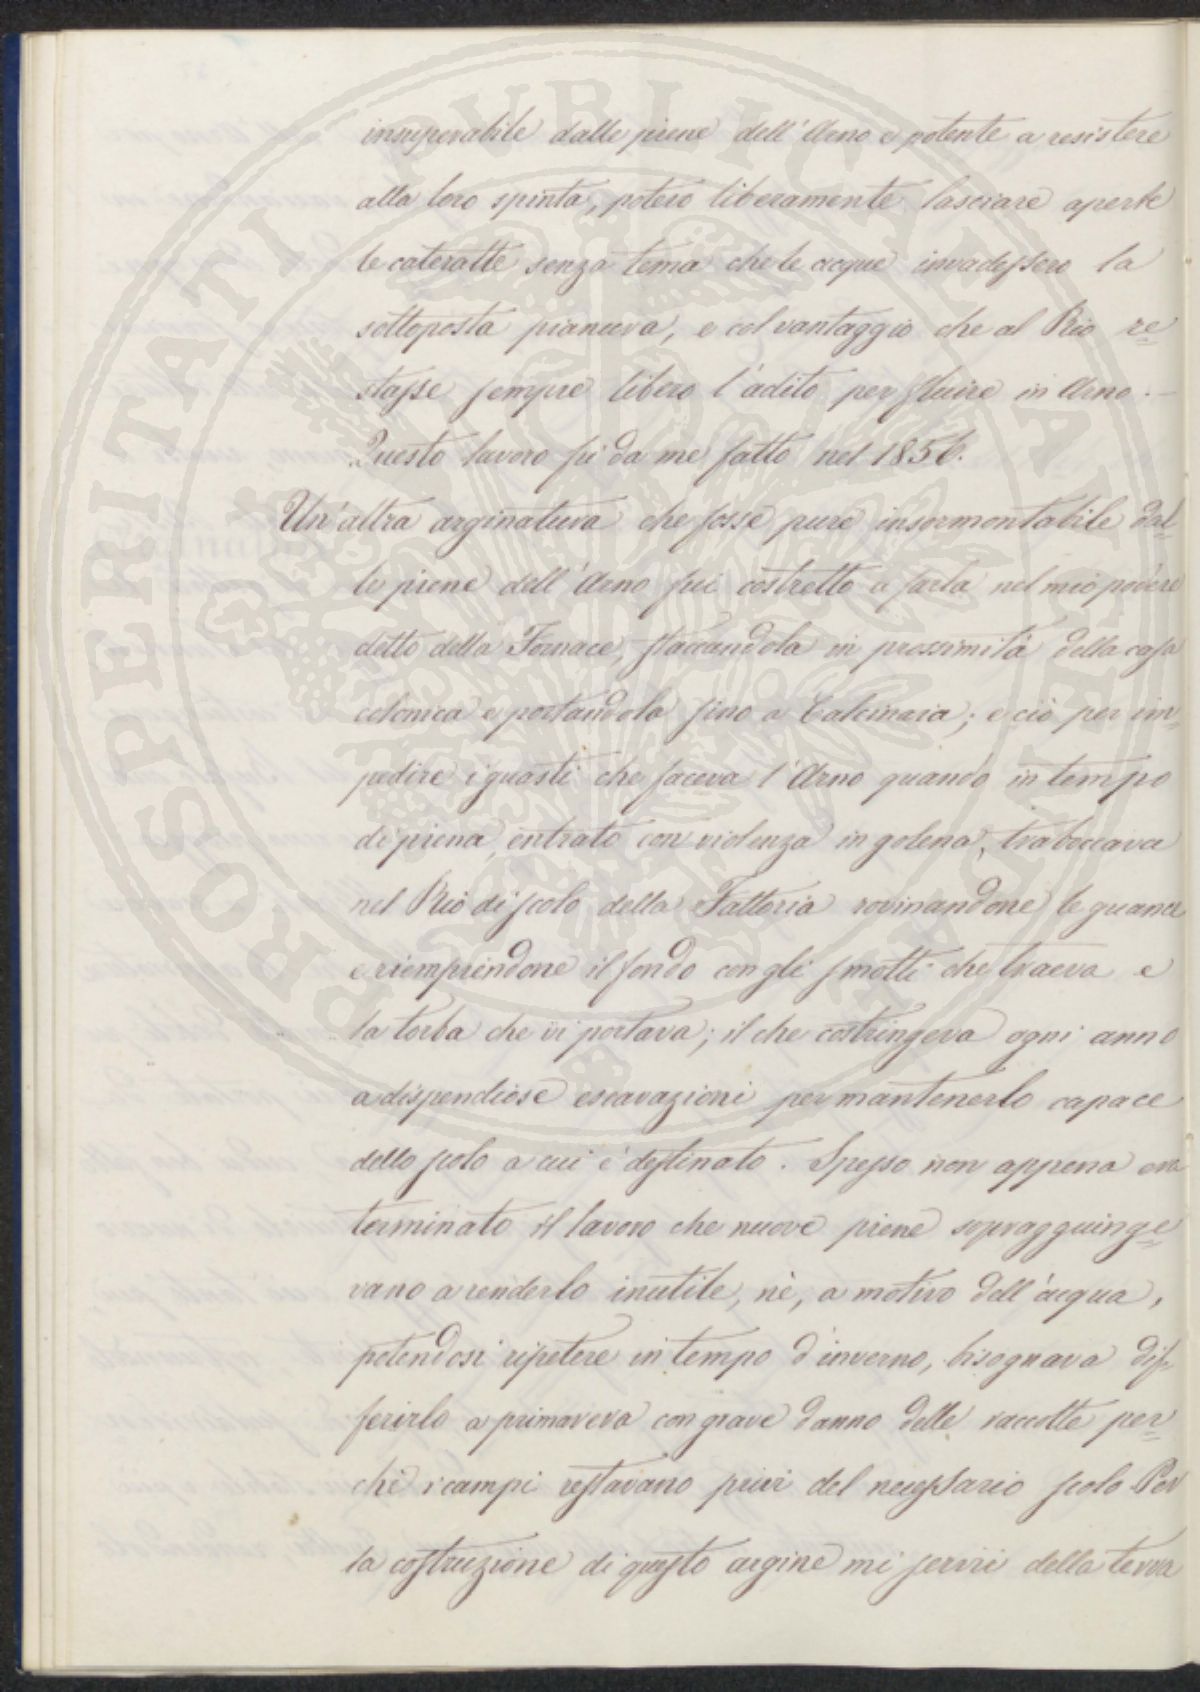 insuperabile dalle piene dell'Arno e potente a resistere
alla loro spinta, potero liberamente lasciare aperte
le cateratte senza tema che le acque invadessero la
sottoposta pianura, e col vantaggio che al Rio re=
stasse sempre libero l'adito per fluire in Arno.—
Questo lavoro fù da me fatto nel 1856.
Un'altra arginatura che fosse pure insormontabile dal=
le piene dell'Arno fui costretto a farla nel mio podere
detto della Fornace, staccandola in prossimità della casa
colonica e portandola fino a Calcinaia; e ciò per im=
pedire i guasti che faceva l'Arno quando in tempo
di piena, entrato con violenza in golena, traboccava
nel Rio di scolo della Fattoria rovinandone le guance
e riempiendone il fondo con gli smotti che traeva e
la torba che vi portava; il che costringeva ogni anno
a dispendiose escavazioni per mantenerlo capace
dello scolo a cui è destinato. Spesso non appena era
terminato il lavoro che nuove piene sopraggiunge=
vano a renderlo inutile, nè, a motivo dell'acqua,
potendosi ripetere in tempo d'inverno, bisognava dif=
ferirlo a primavera con grave danno delle raccolte per=
chè i campi restavano privi del necessario scolo Per
la costruzione di questo argine mi servii della terra
PROSPERITATI PVBLICAE AVGENDAE